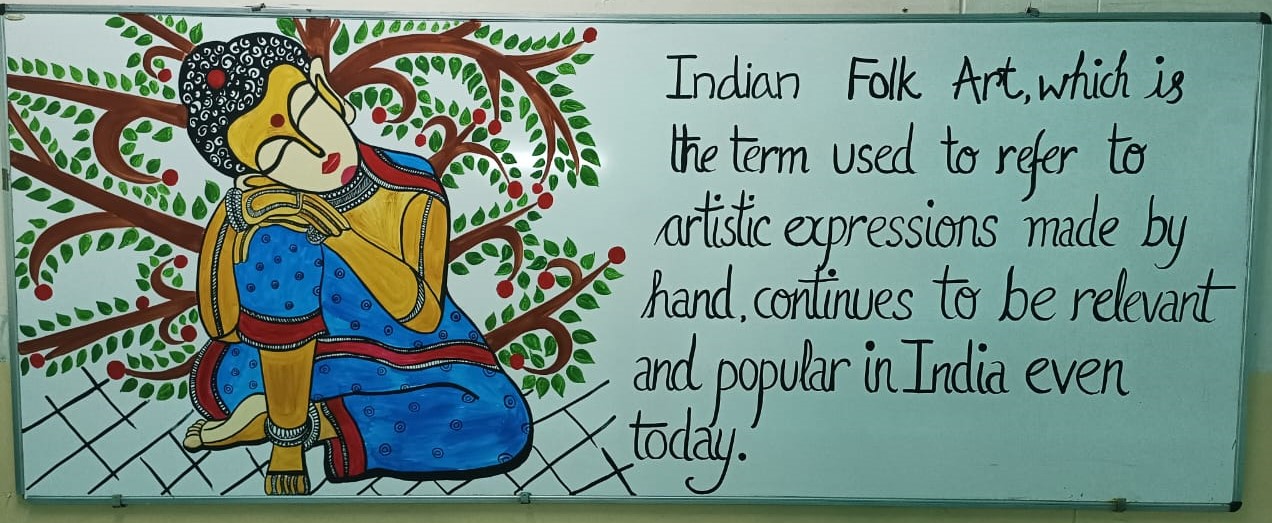 Indian Folk Art, which is
the term used to refer to
artistic expressions made by
hand, continues to be relevant
and popular in India even
today.